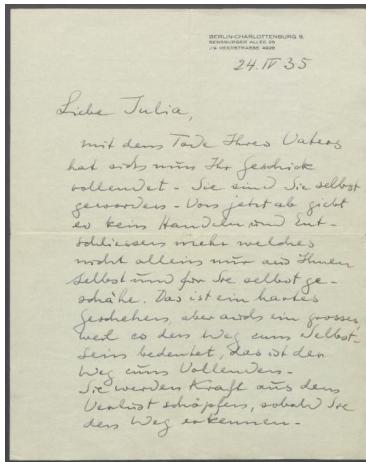 BERLIN-CHARLOTTENBURG 9.
SENSBURGER ALLEE 25
J 9 HEERSTRASSE 4928
24. IV 35
Liebe Julia,
mit dem Tode Ihres Vaters
hat sich nun Ihr Geschick
vollendet - Sie sind Sie selbst
geworden - Von jetzt ab giebt
es kein Handeln und Ent-
schliessen mehr welches
nicht allein nur aus Ihnen
selbst und für Sie selbst ge-
schähe. Das ist ein hartes
Geschehen, aber auch ein grosses
weil es den Weg zum Selbst-
sein bedeutet, das ist der
Weg zum Vollenden -
Sie werden Kraft aus dem
Verlust schöpfen, sobald Sie
den Weg erkennen -